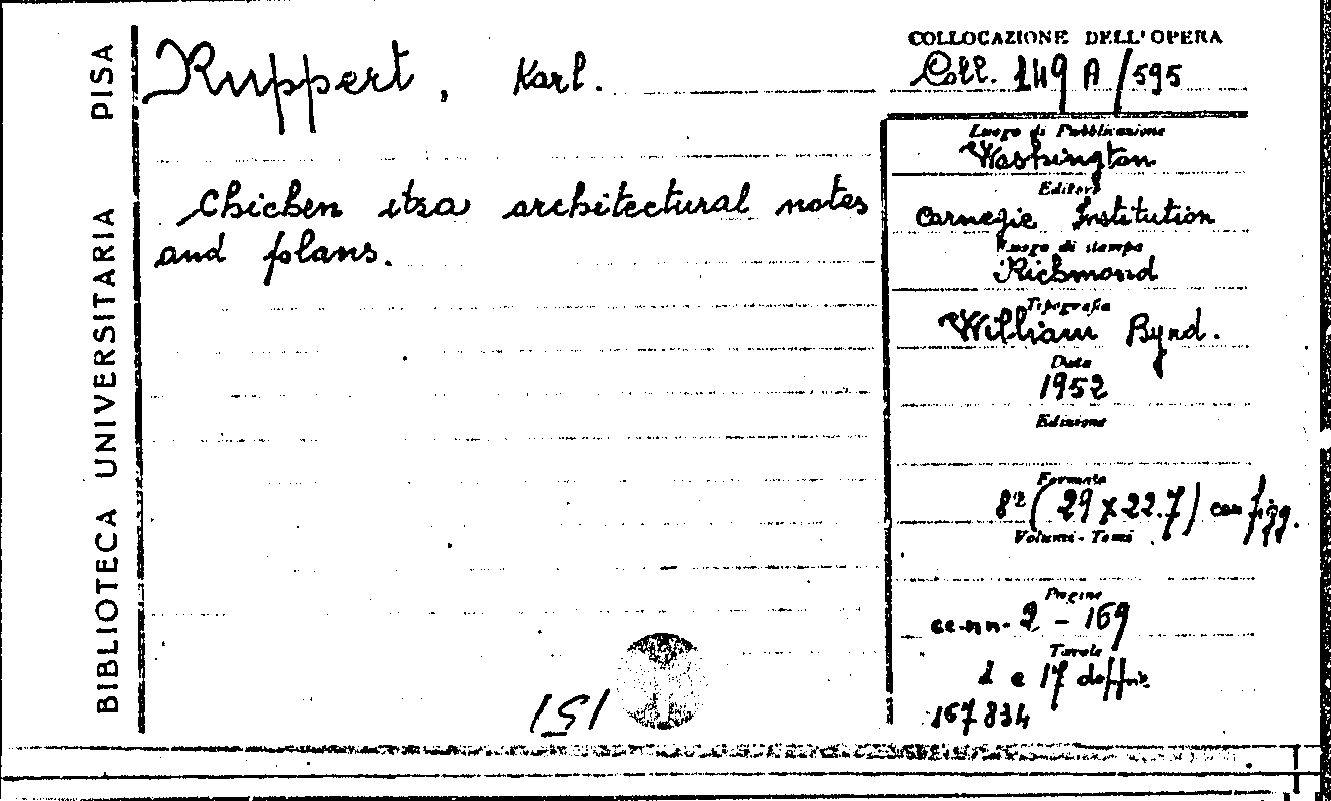 BIBLIOTECA UNIVERSITARIA PISA
Ruppert, Karl.
Chichen itza architectural notes
and plans.
COLLOCAZIONE DELL'OPERA
Coll. 149 A/595
Luogo di Pubblicazione
Washington
Editore
Carnegie Institution
Luogo di stampa
Richmond
Tipografia
William Byrd.
Data
1952
Edizione
Formato
8º (29 x 22.7) con figg.
Volumi - Tomi
Pagine
cc.nn. 2 - 169
Tavole
1 e 17 doppie
167834